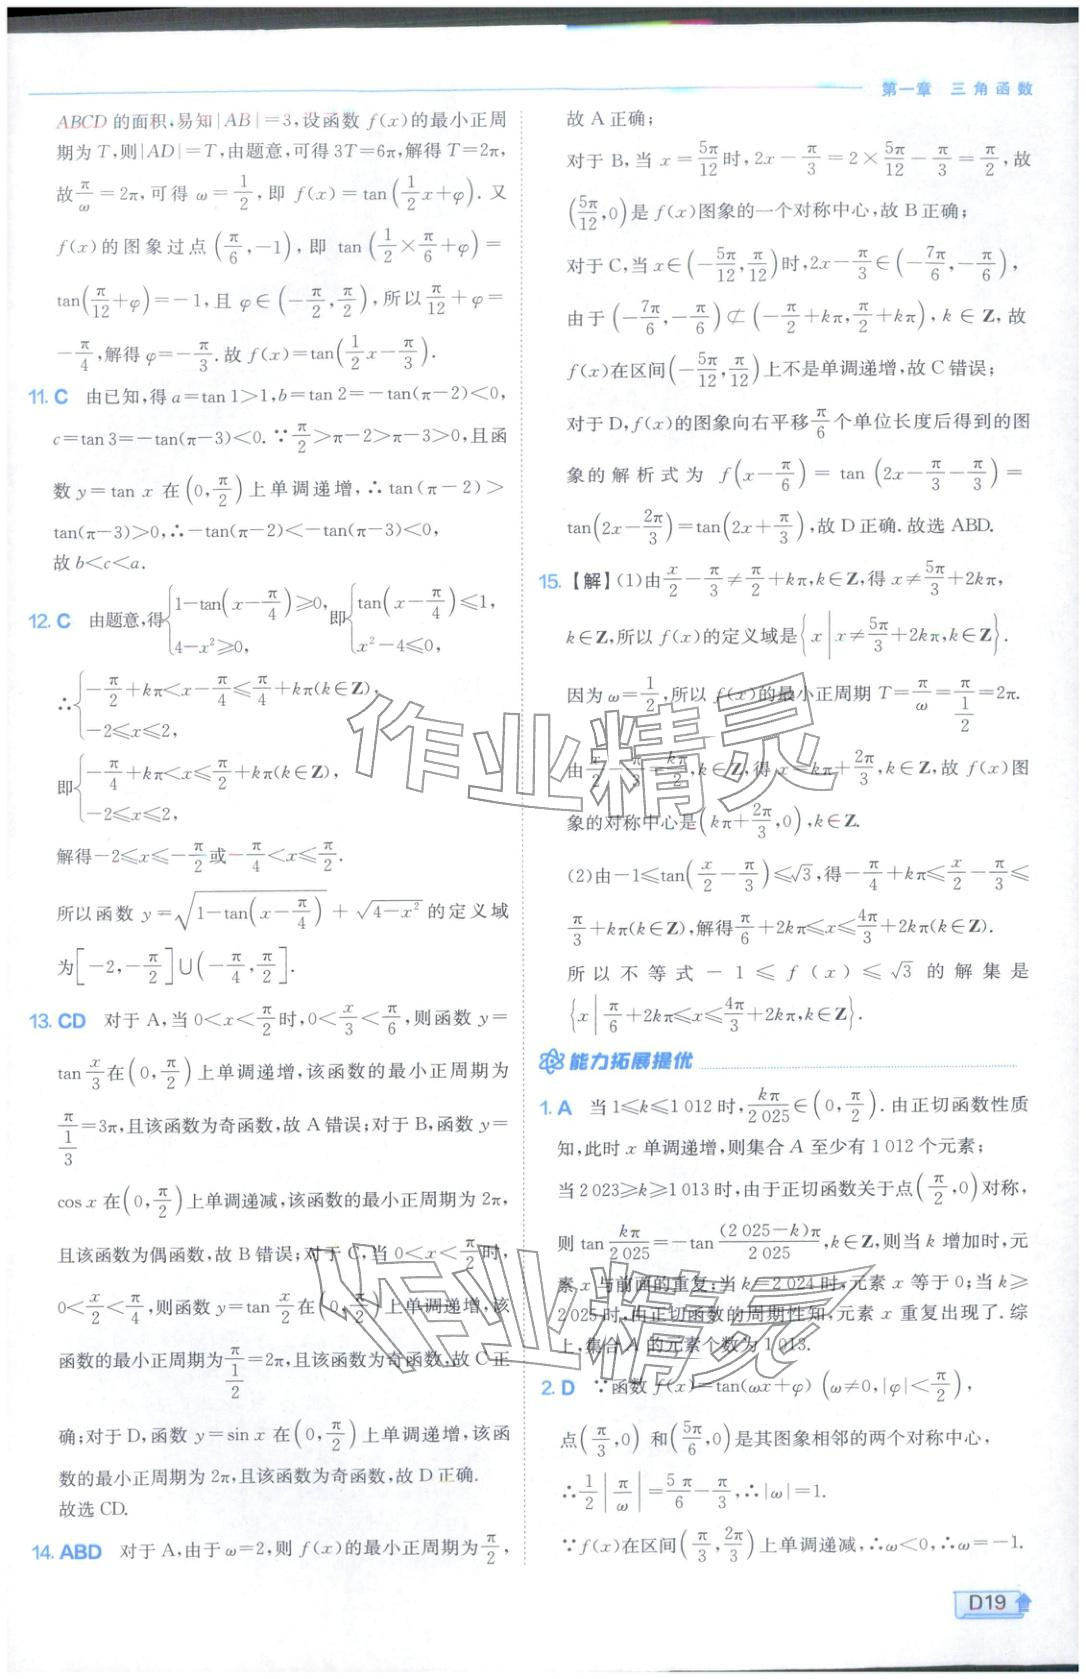 第一章 三角函数
ABCD 的面积,易知|AB|=3,设函数 f(x)的最小正周
期为 T,则|AD|=T,由题意,可得 3T=6π,解得 T=2π,
故 π/ω = 2π,可得 ω = 1/2,即 f(x) = tan(1/2 x+φ). 又
f(x) 的图象过点 (π/6,-1),即 tan (1/2 × π/6 + φ) =
tan(π/12+φ)=-1,且 φ∈(-π/2,π/2),所以 π/12 + φ =
-π/4,解得 φ=-π/3.故 f(x)=tan(1/2 x-π/3).
11. C 由已知,得 a=tan 1>1,b=tan 2=-tan(π-2)<0,
c=tan 3=-tan(π-3)<0.∵π/2>π-2>π-3>0,且函
数 y=tan x 在 (0,π/2) 上单调递增,∴tan(π-2)>
tan(π-3)>0,∴-tan(π-2)<-tan(π-3)<0,
故 b<c<a.
12. C 由题意,得{1-tan(x-π/4)≥0, 4-x²≥0, 即{tan(x-π/4)≤1, x²-4≤0,
∴{-π/2+kπ<x-π/4≤π/4+kπ(k∈Z), -2≤x≤2,
即{-π/4+kπ<x≤π/2+kπ(k∈Z), -2≤x≤2,
解得-2≤x≤-π/2或-π/4<x≤π/2.
所以函数 y=√(1-tan(x-π/4)) + √(4-x²) 的定义域
为[-2,-π/2]∪(-π/4,π/2].
13. CD 对于 A,当 0<x<π/2时,0<x/3<π/6,则函数 y=
tan x/3在(0,π/2)上单调递增,该函数的最小正周期为
π/(1/3)=3π,且该函数为奇函数,故 A 错误;对于 B,函数 y=
cos x 在(0,π/2)上单调递减,该函数的最小正周期为 2π,
且该函数为偶函数,故 B 错误;对于 C,当 0<x<π/2时,
0<x/2<π/4,则函数 y=tan x/2在(0,π/2)上单调递增,该
函数的最小正周期为π/(1/2)=2π,且该函数为奇函数,故 C 正
确;对于 D,函数 y=sin x 在(0,π/2)上单调递增,该函
数的最小正周期为 2π,且该函数为奇函数,故 D 正确.
故选 CD.
14. ABD 对于 A,由于 ω=2,则 f(x)的最小正周期为π/2,
故 A 正确;
对于 B,当 x=5π/12时,2x-π/3=2×5π/12-π/3=π/2,故
(5π/12,0)是 f(x)图象的一个对称中心,故 B 正确;
对于 C,当 x∈(-5π/12,π/12)时,2x-π/3∈(-7π/6,-π/6),
由于(-7π/6,-π/6)⊄(-π/2+kπ,π/2+kπ),k∈Z,故
f(x)在区间(-5π/12,π/12)上不是单调递增,故 C 错误;
对于 D,f(x)的图象向右平移π/6个单位长度后得到的图
象的解析式为 f(x-π/6) = tan (2x-π/3-π/3) =
tan(2x-2π/3)=tan(2x+π/3),故 D 正确.故选 ABD.
15. 【解】(1)由x/2-π/3≠π/2+kπ,k∈Z,得 x≠5π/3+2kπ,
k∈Z,所以 f(x)的定义域是{x|x≠5π/3+2kπ,k∈Z}.
因为 ω=1/2,所以 f(x)的最小正周期 T=π/ω=π/(1/2)=2π.
由x/2-π/3=kπ/2,k∈Z,得 x=kπ+2π/3,k∈Z,故 f(x)图
象的对称中心是(kπ+2π/3,0),k∈Z.
(2)由-1≤tan(x/2-π/3)≤√3,得-π/4+kπ≤x/2-π/3≤
π/3+kπ(k∈Z),解得π/6+2kπ≤x≤4π/3+2kπ(k∈Z).
所以不等式-1≤f(x)≤√3的解集是
{x|π/6+2kπ≤x≤4π/3+2kπ,k∈Z}.
能力拓展提优
1. A 当 1≤k≤1 012 时,kπ/2 025∈(0,π/2).由正切函数性质
知,此时 x 单调递增,则集合 A 至少有 1 012 个元素;
当 2 023≥k≥1 013 时,由于正切函数关于点(π/2,0)对称,
则 tan kπ/2 025=-tan (2 025-k)π/2 025,k∈Z,则当 k 增加时,元
素 x 与前面的重复;当 k=2 024 时,元素 x 等于 0;当 k≥
2 025 时,由正切函数的周期性知,元素 x 重复出现了.综
上,集合 A 的元素个数为 1 013.
2. D ∵函数 f(x)=tan(ωx+φ) (ω≠0,|φ|<π/2),
点(π/3,0) 和(5π/6,0)是其图象相邻的两个对称中心,
∴1/2|π/ω|=5π/6-π/3,∴|ω|=1.
∵f(x)在区间(π/3,2π/3)上单调递减,∴ω<0,∴ω=-1.
D19
作业精灵
作业精灵